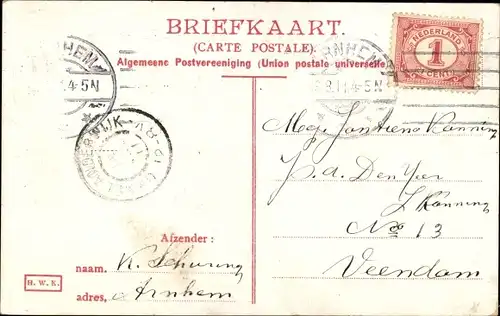 BRIEFKAART.
(CARTE POSTALE).
Algemeene Postvereeniging (Union postale universelle)
NEDERLAND
1
CENT
NHEM
4-5N
RNHEM
4-5N
Mej. Jantiena Kanning
p. a. Den Heer
J Kanning
No 13
Veendam
Afzender :
naam. K. Schuring
H.W.K.
adres, Arnhem